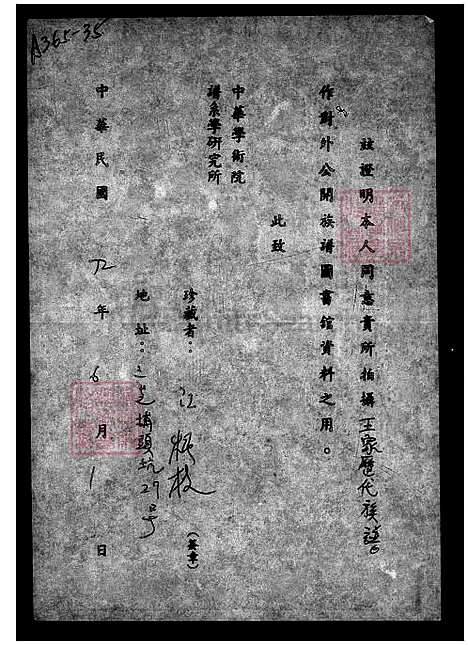 A365-35
茲證明本人同意貴所拍攝王家歷代族譜
作對外公開族譜圖書館資料之用。
此致
中華學術院
譜系學研究所
珍藏者：江 枝 (簽章)
地址：三芝埔頭坑29号
中華民國72年6月1日